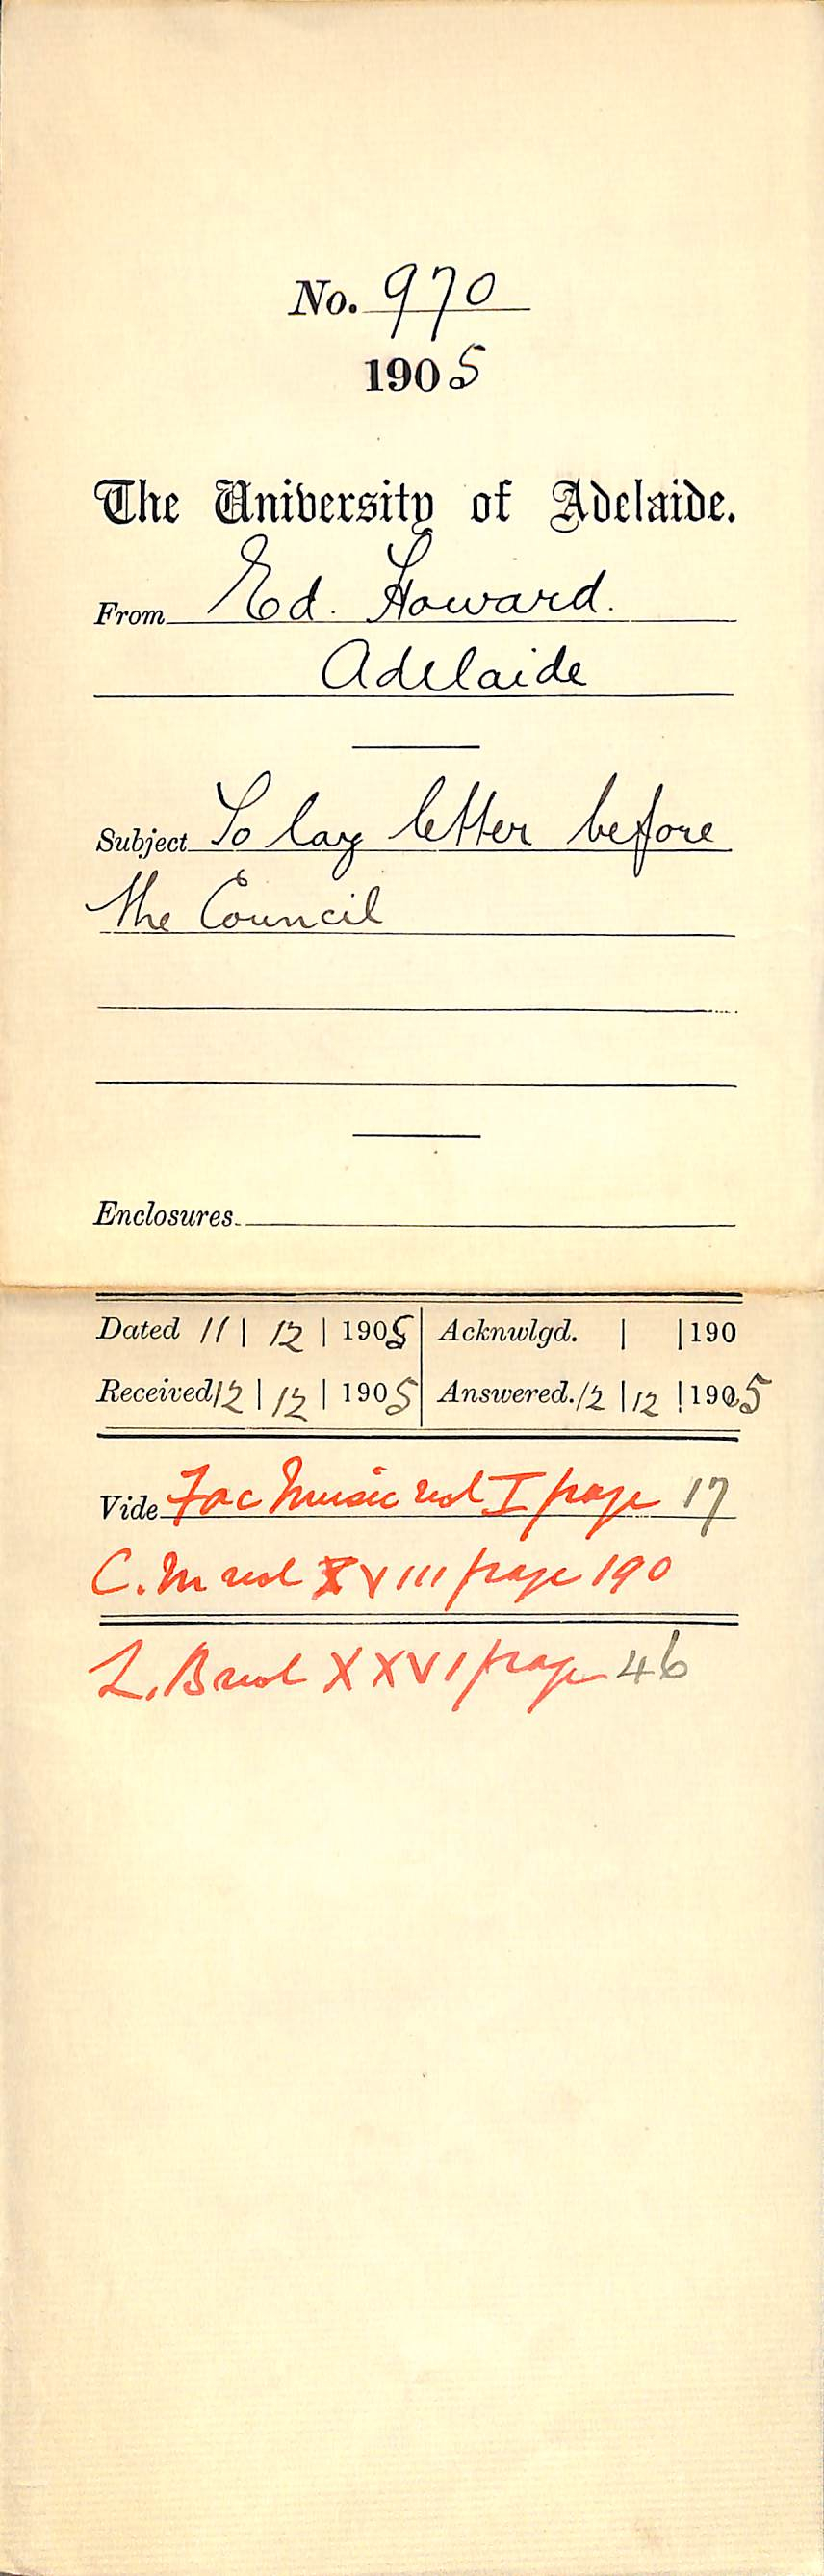 No. 970
1905
The University of Adelaide.
From Ed. Howard.
Adelaide
Subject To lay letter before
the Council
Enclosures
Dated 11 | 12 | 1905 Acknwlgd. | | 190
Received 12 | 12 | 1905 Answered. 12 | 12 | 1905
Vide Fac Music vol I page 17
C. M vol XVIII page 190
L. B vol XXVI page 46